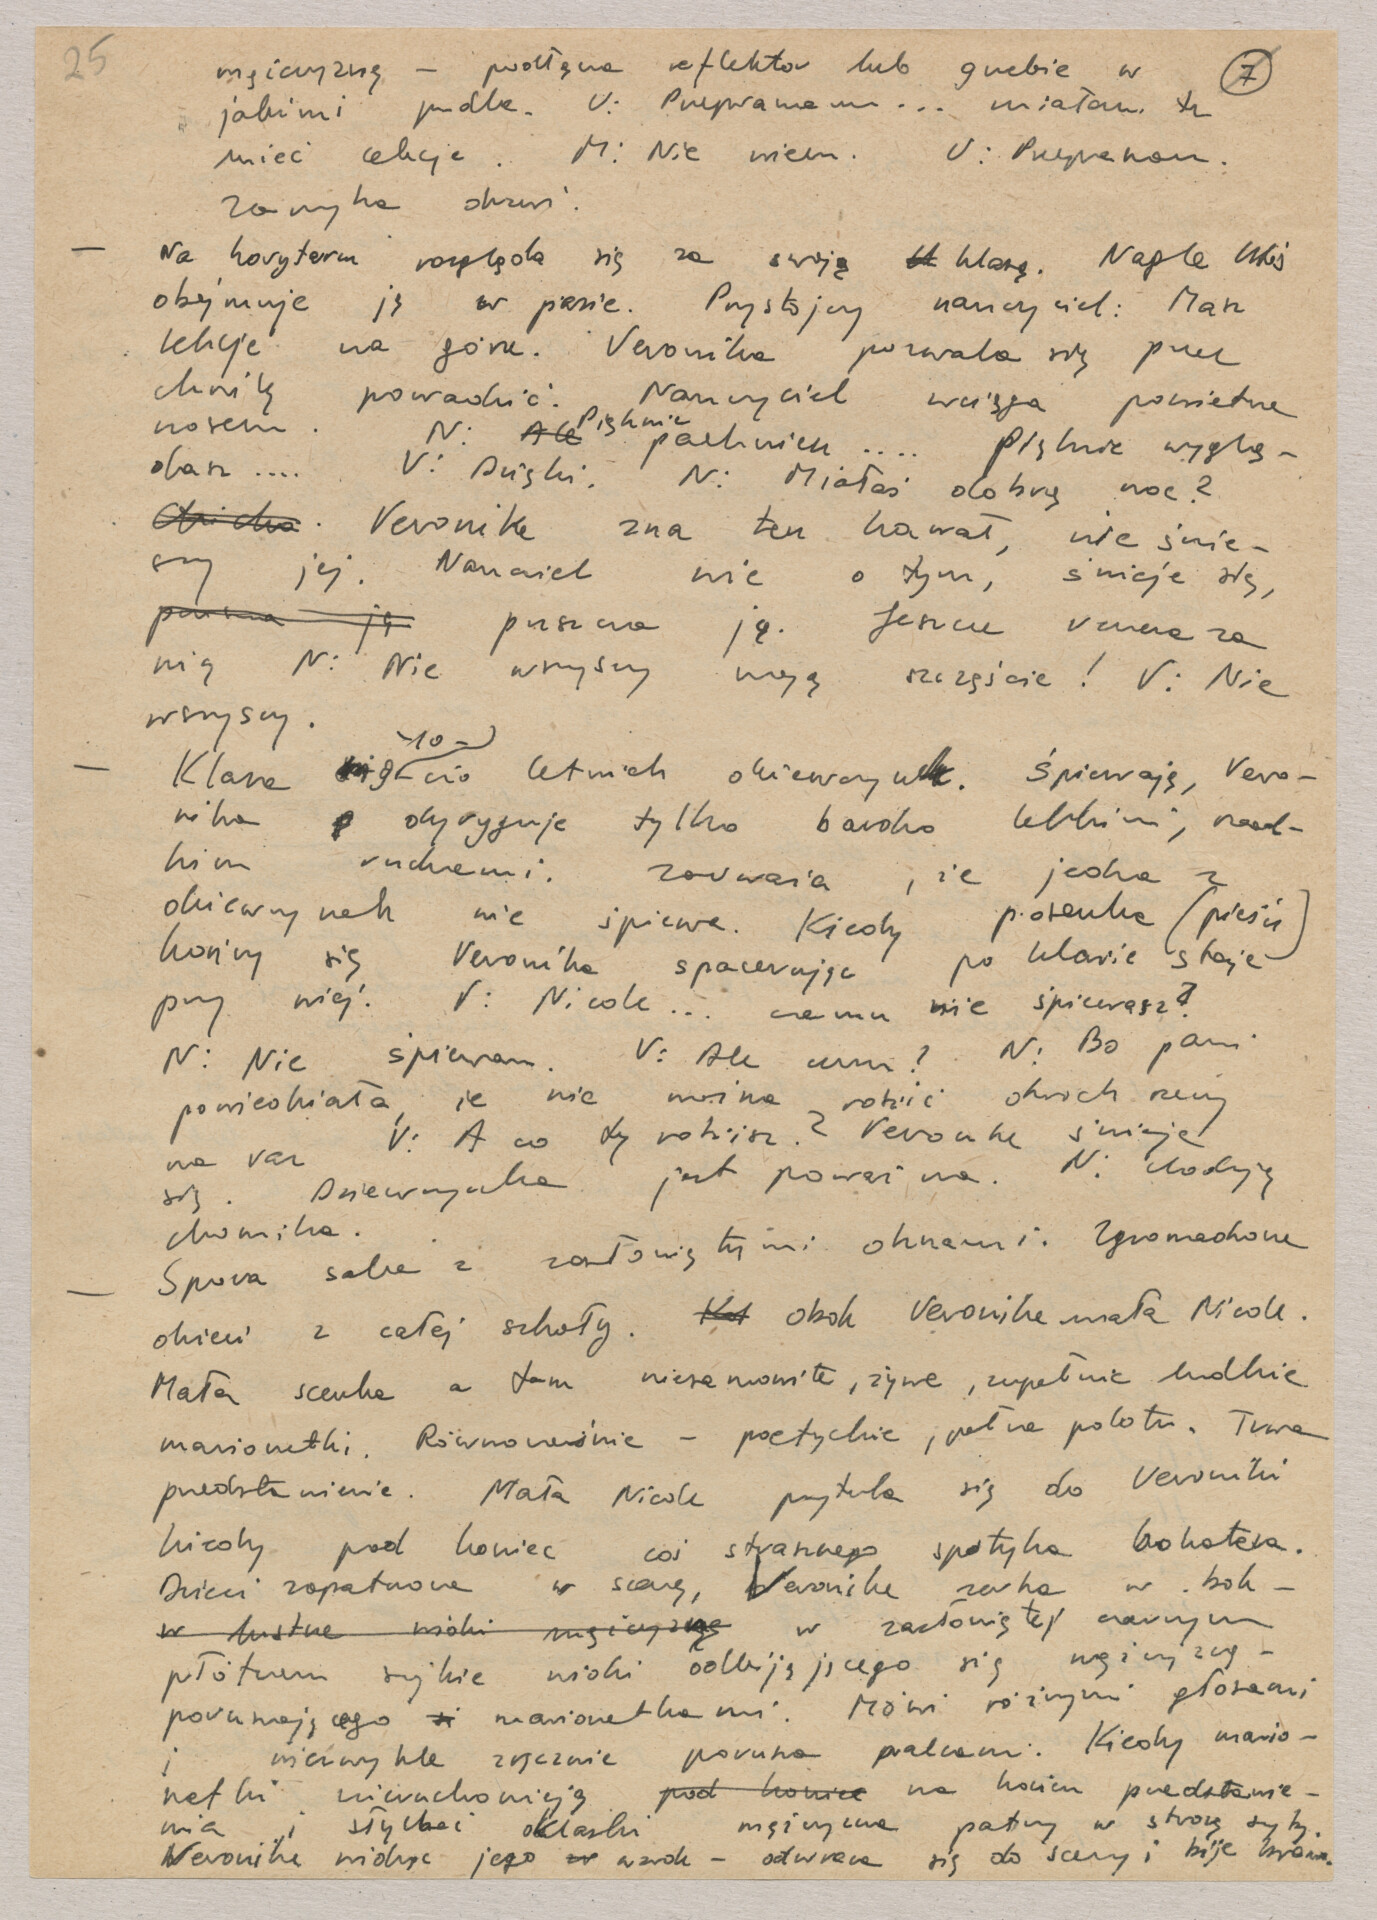 25
7
mężczyznę – podłącza reflektor lub grzebie w
jakimś pudle. V: Przepraszam... miałam tu
mieć lekcje. M: Nie wiem. V: Przepraszam.
zamyka drzwi.
— Na korytarzu rozgląda się za swoją klasą. Nagle ktoś
obejmuje ją w pasie. Przystojny nauczyciel: Masz
lekcje na górze. Veronika pozwala się przez
chwilę prowadzić. Nauczyciel wciąga powietrze
nosem. N: Ale Pięknie pachniesz.... Pięknie wyglą-
dasz.... V: Dzięki. N: Miałaś dobrą noc?
Veronika zna ten kawał, nie śmie-
szy jej. Nauczyciel wie o tym, śmieje się,
puszcza ją puszcza ją. Jeszcze za
nią N: Nie wszyscy mają szczęście! V: Nie
wszyscy.
— Klasa 10-cio letnich dziewczynek. Śpiewają, Vero-
nika dyryguje tylko bardzo lekkimi,
ruchami. zauważa, że jedna z
dziewczynek nie śpiewa. Kiedy piosenka (pieśń)
kończy się Veronika spacerując po klasie staje
przy niej. V: Nicole... czemu nie śpiewasz?
N: Nie śpiewam. V: Ale czemu? N: Bo pani
powiedziała, że nie można robić dwóch rzeczy
na raz V: A co ty robisz? Veronika śmieje
się. Dziewczynka jest poważna. N: Hoduję
chomika.
— Spora salka z zasłoniętymi oknami. Zgromadzone
dzieci z całej szkoły. obok Veroniki mała Nicole.
Mała scenka a tam niesamowite, żywe, zupełnie ludzkie
marionetki. Równocześnie – poetyckie, pełne polotu. Trwa
przedstawienie. Mała Nicole przytula się do Veroniki
kiedy pod koniec coś strasznego spotyka bohatera.
Dzieci zapatrzone w scenę, Veronika zerka w bok –
w lustrze widzi mężczyznę w zasłoniętej czarnym
płótnem szybie widzi odbijającego się mężczyznę –
poruszającego marionetkami. Mówi różnymi głosami
i niezwykle zręcznie porusza palcami. Kiedy mario-
netki nieruchomieją pod koniec na koniec przedstawie-
nia i słychać oklaski mężczyzna patrzy w stronę szyby.
Veronika widząc jego wzrok – odwraca się do sceny i bije brawo.